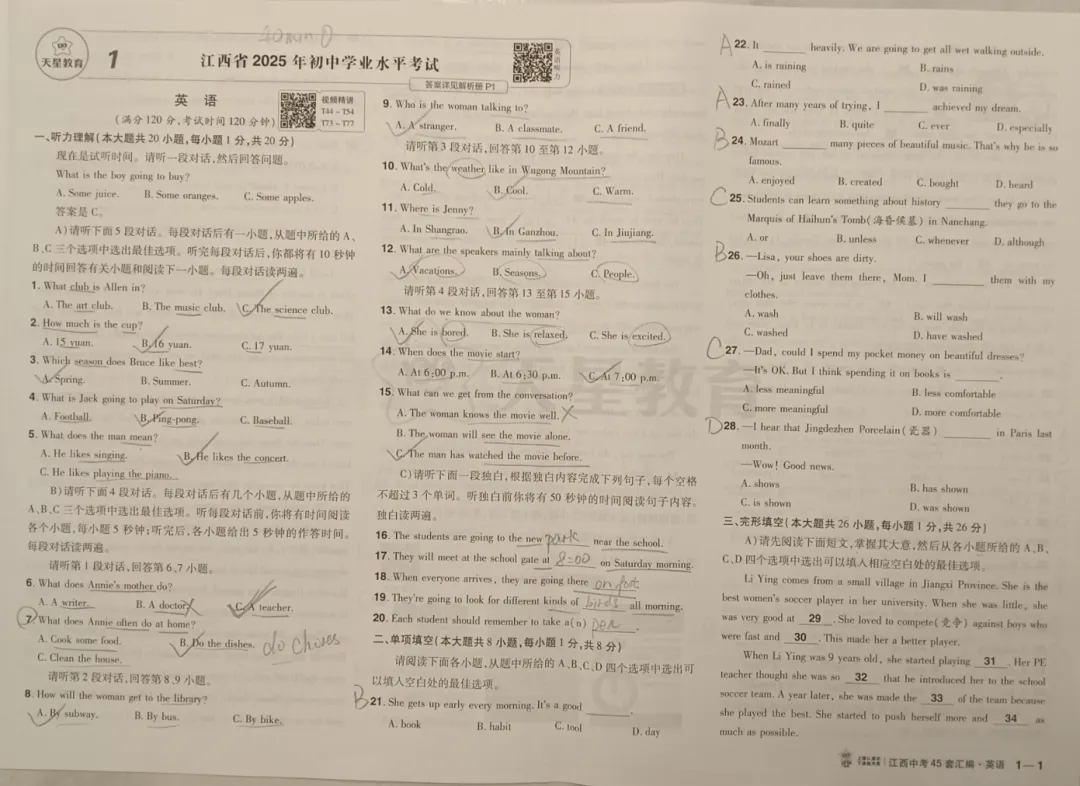 40min
天星教育
1
江西省2025年初中学业水平考试
英语听力
答案详见解析册 P1
英 语
视频精讲
T44-T54
T73-T77
(满分120分,考试时间120分钟)
一、听力理解(本大题共20小题,每小题1分,共20分)
现在是试听时间。请听一段对话,然后回答问题。
What is the boy going to buy?
A. Some juice. B. Some oranges. C. Some apples.
答案是C。
A)请听下面5段对话。每段对话后有一小题,从题中所给的A、
B、C三个选项中选出最佳选项。听完每段对话后,你都将有10秒钟
的时间回答有关小题和阅读下一小题。每段对话读两遍。
1. What club is Allen in?
A. The art club. B. The music club. C. The science club.
2. How much is the cup?
A. 15 yuan. B. 16 yuan. C. 17 yuan.
3. Which season does Bruce like best?
A. Spring. B. Summer. C. Autumn.
4. What is Jack going to play on Saturday?
A. Football. B. Ping-pong. C. Baseball.
5. What does the man mean?
A. He likes singing. B. He likes the concert.
C. He likes playing the piano.
B)请听下面4段对话。每段对话后有几个小题,从题中所给的
A、B、C三个选项中选出最佳选项。听每段对话前,你将有时间阅读
各个小题,每小题5秒钟;听完后,各小题给出5秒钟的作答时间。
每段对话读两遍。
请听第1段对话,回答第6、7小题。
6. What does Annie's mother do?
A. A writer. B. A doctor. C. A teacher.
7. What does Annie often do at home?
A. Cook some food. B. Do the dishes. do chores
C. Clean the house.
请听第2段对话,回答第8、9小题。
8. How will the woman get to the library?
A. By subway. B. By bus. C. By bike.
9. Who is the woman talking to?
A. A stranger. B. A classmate. C. A friend.
请听第3段对话,回答第10至第12小题。
10. What's the weather like in Wugong Mountain?
A. Cold. B. Cool. C. Warm.
11. Where is Jenny?
A. In Shangrao. B. In Ganzhou. C. In Jiujiang.
12. What are the speakers mainly talking about?
A. Vacations. B. Seasons. C. People.
请听第4段对话,回答第13至第15小题。
13. What do we know about the woman?
A. She is bored. B. She is relaxed. C. She is excited.
14. When does the movie start?
A. At 6:00 p.m. B. At 6:30 p.m. C. At 7:00 p.m.
15. What can we get from the conversation?
A. The woman knows the movie well.
B. The woman will see the movie alone.
C. The man has watched the movie before.
C)请听下面一段独白,根据独白内容完成下列句子,每个空格
不超过3个单词。听独白前你将有50秒钟的时间阅读句子内容。
独白读两遍。
16. The students are going to the new park near the school.
17. They will meet at the school gate at 8:00 on Saturday morning.
18. When everyone arrives, they are going there on foot.
19. They're going to look for different kinds of birds all morning.
20. Each student should remember to take a(n) pen.
二、单项填空(本大题共8小题,每小题1分,共8分)
请阅读下面各小题,从题中所给的A、B、C、D四个选项中选出可
以填入空白处的最佳选项。
B 21. She gets up early every morning. It's a good ______.
A. book B. habit C. tool D. day
A 22. It ______ heavily. We are going to get all wet walking outside.
A. is raining B. rains
C. rained D. was raining
A 23. After many years of trying, I ______ achieved my dream.
A. finally B. quite C. ever D. especially
B 24. Mozart ______ many pieces of beautiful music. That's why he is so
famous.
A. enjoyed B. created C. bought D. heard
C 25. Students can learn something about history ______ they go to the
Marquis of Haihun's Tomb(海昏侯墓) in Nanchang.
A. or B. unless C. whenever D. although
B 26. —Lisa, your shoes are dirty.
—Oh, just leave them there, Mom. I ______ them with my
clothes.
A. wash B. will wash
C. washed D. have washed
C 27. —Dad, could I spend my pocket money on beautiful dresses?
—It's OK. But I think spending it on books is ______.
A. less meaningful B. less comfortable
C. more meaningful D. more comfortable
D 28. —I hear that Jingdezhen Porcelain(瓷器) ______ in Paris last
month.
—Wow! Good news.
A. shows B. has shown
C. is shown D. was shown
三、完形填空(本大题共26小题,每小题1分,共26分)
A)请先阅读下面短文,掌握其大意,然后从各小题所给的A、B、
C、D四个选项中选出可以填入相应空白处的最佳选项。
Li Ying comes from a small village in Jiangxi Province. She is the
best women's soccer player in her university. When she was little, she
was very good at 29. She loved to compete(竞争) against boys who
were fast and 30. This made her a better player.
When Li Ying was 9 years old, she started playing 31. Her PE
teacher thought she was so 32 that he introduced her to the school
soccer team. A year later, she was made the 33 of the team because
she played the best. She started to push herself more and 34 as
much as possible.
江西中考45套汇编·英语 1—1
天星教育